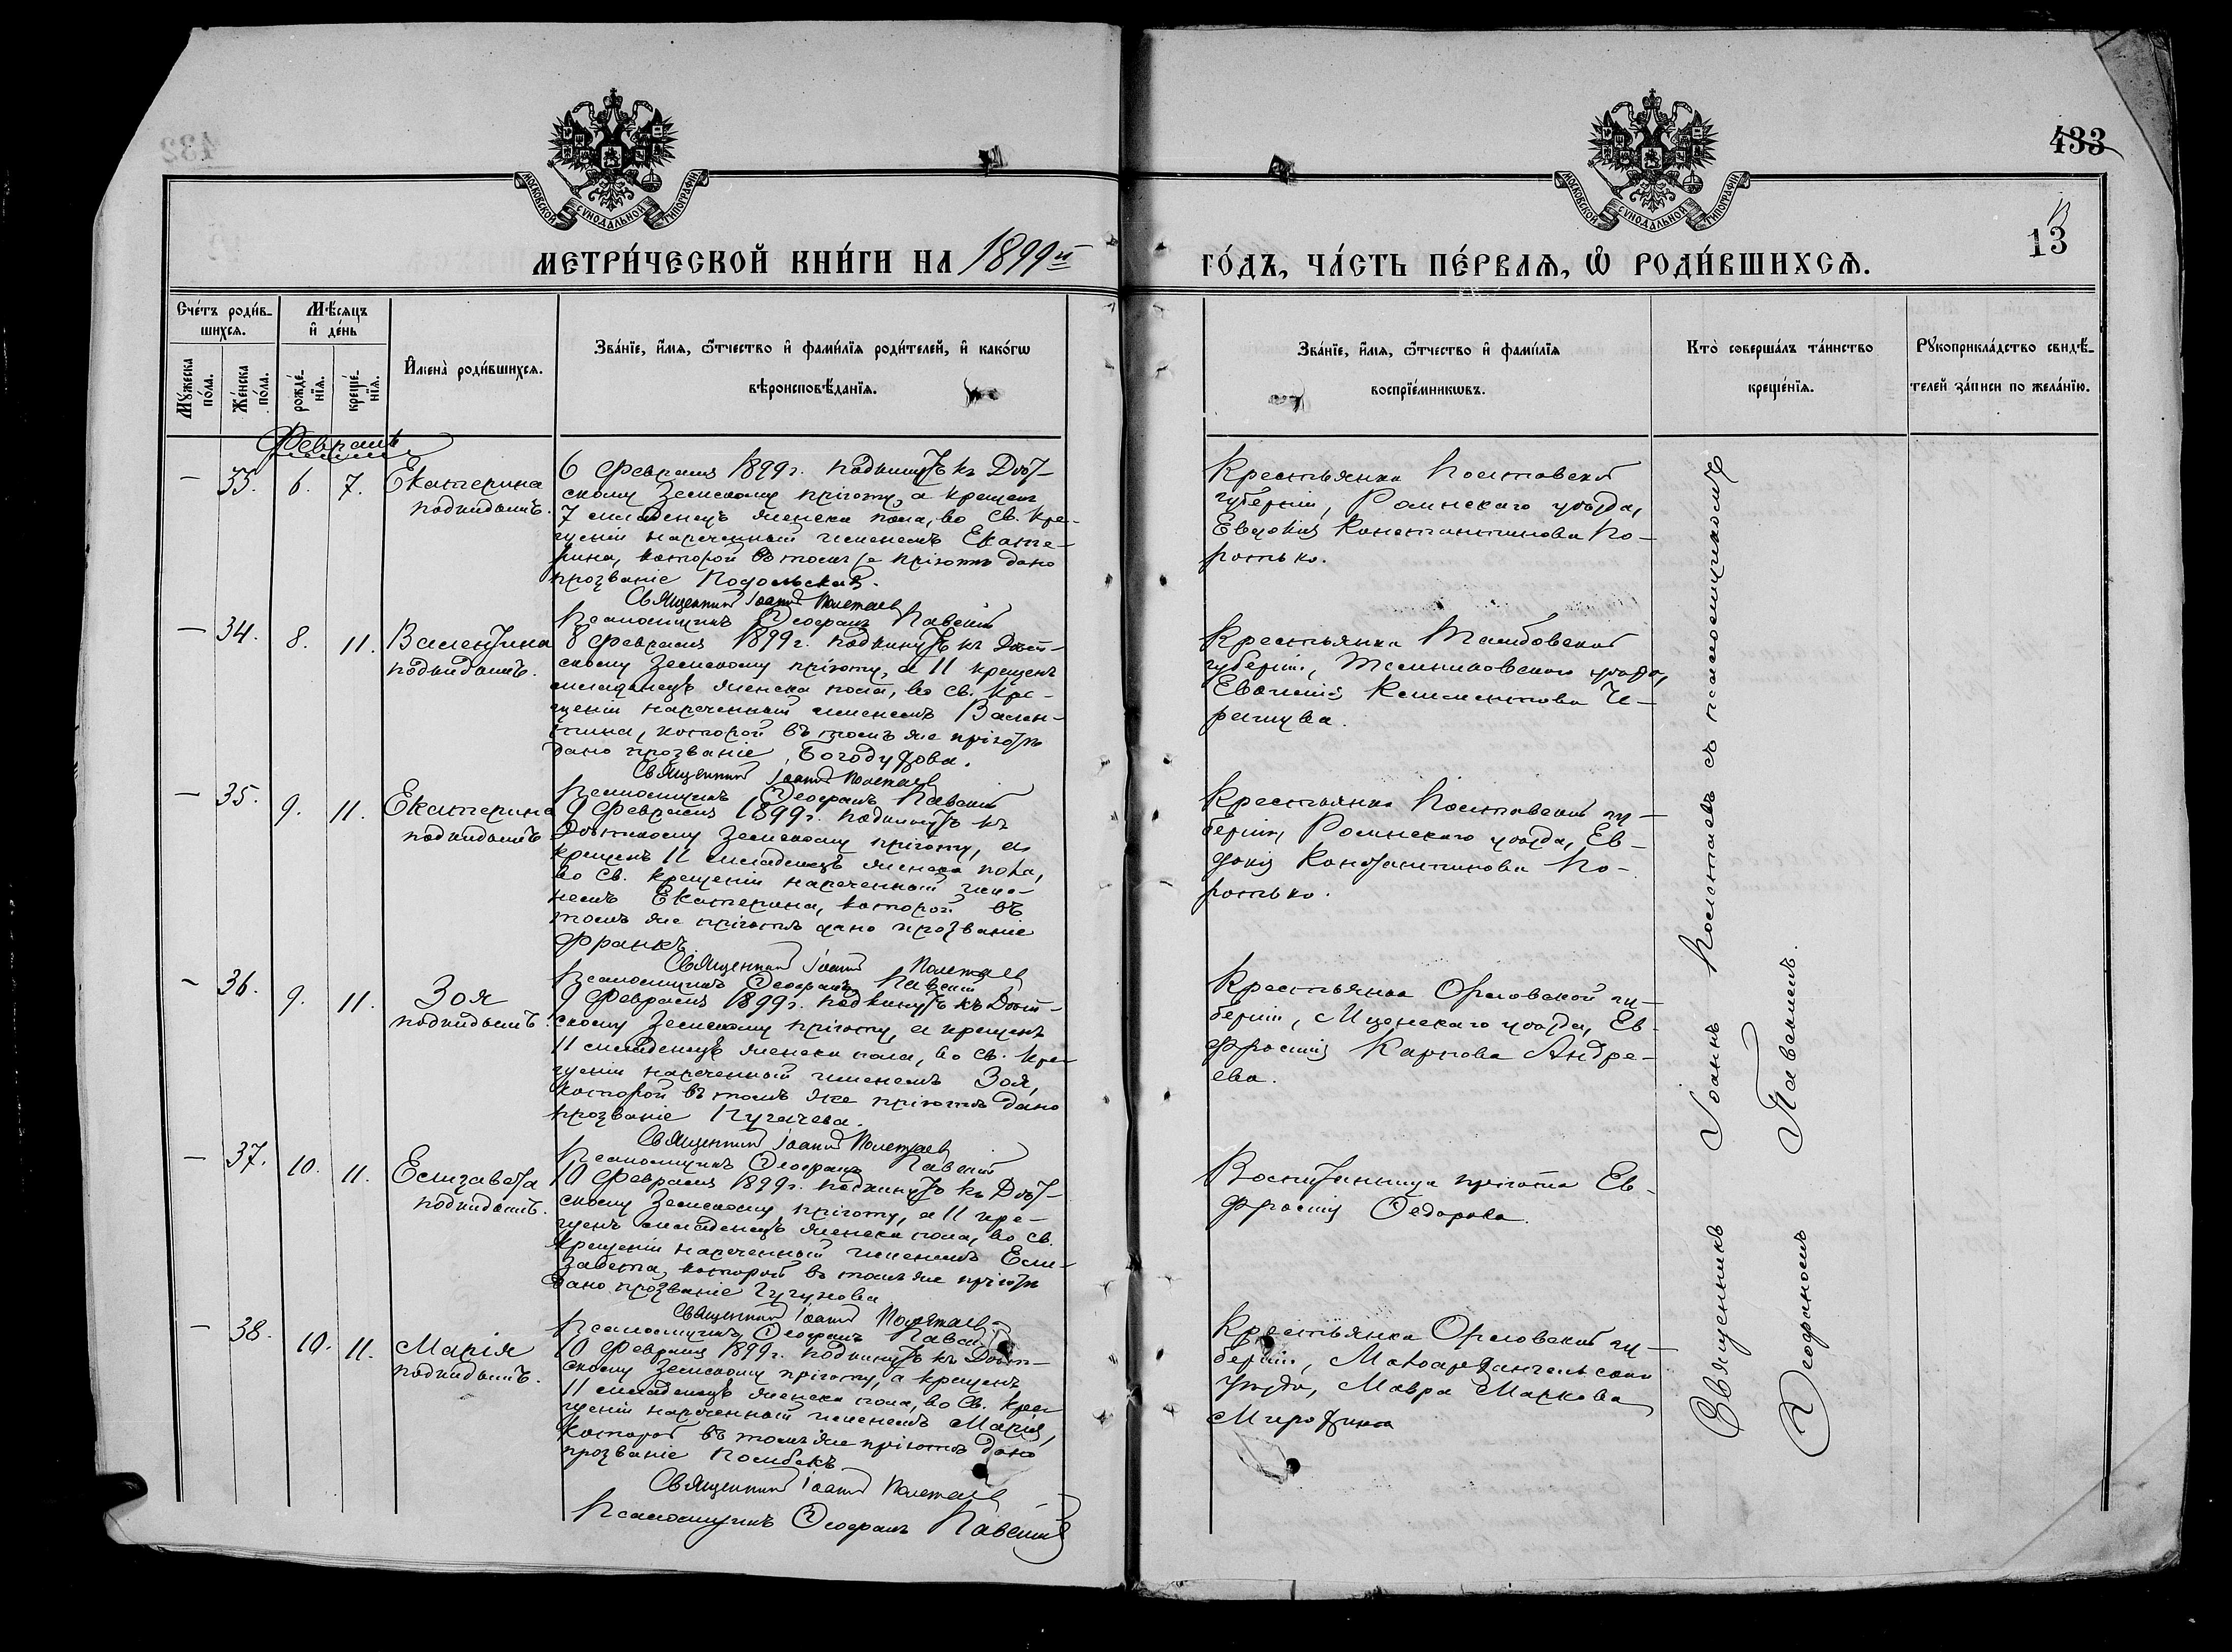 433
13
МОСКОВСКОЙ СѴНОДАЛЬНОЙ ТИПОГРАФІИ
МОСКОВСКОЙ СѴНОДАЛЬНОЙ ТИПОГРАФІИ
МЕТРИ́ЧЕСКОЙ КНИ́ГИ НА 1899й
ГО́ДЪ, ЧА́СТЬ ПЕ́РВАѦ, Ѡ҆ РОДИ́ВШИХСѦ.
Сче́тъ роди́в-
шихсѧ.
Мꙋ́жеска
по́ла.
Же́нска
по́ла.
Мѣ́сѧцъ
и҆ де́нь
рожде́-
нїѧ.
креще́-
нїѧ.
И҆мена̀ роди́вшихсѧ.
Зва́нїе, и҆́мѧ, ѻ҆́тчество и҆ фами́лїѧ роди́телей, и҆ како́гѡ
вѣроисповѣ́данїѧ.
Зва́нїе, и҆́мѧ, ѻ҆́тчество и҆ фами́лїѧ
воспрїе́мникѡвъ.
Кто̀ соверша́лъ та́инство
креще́нїѧ.
Рꙋкоприкла́дство свидѣ́-
телей за́писи по жела́нїю.
Февраль
— 33. 6. 7.
Екатерина
подкидышъ.
6 Февраля 1899 г. подкинутъ къ Дѣт-
скому Земскому пріюту, а крещенъ
7 младенецъ женска пола, во Св. Кре-
щеніи нареченный именемъ Екате-
рина, которой въ томъ же пріютѣ дано
прозваніе Подольская.
Священникъ Іоаннъ Полетаевъ
Псаломщикъ Ѳеофанъ Павскій
Крестьянка Полтавской
губерніи, Роменскаго уѣзда,
Евдокія Константинова Ко-
ротько.
— 34. 8. 11.
Валентина
подкидышъ.
8 Февраля 1899 г. подкинутъ къ Дѣт-
скому Земскому пріюту, а 11 крещенъ
младенецъ женска пола, во Св. Кре-
щеніи нареченный именемъ Вален-
тина, которой въ томъ же пріютѣ
дано прозваніе Богодухова.
Священникъ Іоаннъ Полетаевъ
Псаломщикъ Ѳеофанъ Павскій
Крестьянка Тамбовской
губерніи, Темниковскаго уѣзда,
Климентова
— 35. 9. 11.
Екатерина
подкидышъ
9 Февраля 1899 г. подкинутъ къ
Дѣтскому Земскому пріюту, а
крещенъ 11 младенецъ женска пола,
во Св. Крещеніи нареченный име-
немъ Екатерина, которой въ
томъ же пріютѣ дано прозваніе
Франкъ
Священникъ Іоаннъ Полетаевъ
Псаломщикъ Ѳеофанъ Павскій
Крестьянка Полтавской гу-
берніи, Роменскаго уѣзда, Ев-
докія Константинова Ко-
ротько.
— 36. 9. 11.
Зоя
подкидышъ.
9 Февраля 1899 г. подкинутъ къ Дѣт-
скому Земскому пріюту, а крещенъ
11 младенецъ женска пола, во Св. Кре-
щеніи нареченный именемъ Зоя,
которой въ томъ же пріютѣ дано
прозваніе Пугачева.
Священникъ Іоаннъ Полетаевъ
Псаломщикъ Ѳеофанъ Павскій
Крестьянка Орловской гу-
берніи, Мценскаго уѣзда, Ев-
фросинія Карпова Андре-
ева.
— 37. 10. 11.
Елизавета
подкидышъ.
10 Февраля 1899 г. подкинутъ къ Дѣт-
скому Земскому пріюту, а 11 кре-
щенъ младенецъ женска пола, во Св.
Крещеніи нареченный именемъ Ели-
завета, которой въ томъ же пріютѣ
дано прозваніе Чугунова
Священникъ Іоаннъ Полетаевъ
Псаломщикъ Ѳеофанъ Павскій
Воспитанница пріюта Ев-
фросинія Ѳедорова.
— 38. 10. 11.
Марія
подкидышъ.
10 Февраля 1899 г. подкинутъ къ Дѣт-
скому Земскому пріюту, а крещенъ
11 младенецъ женска пола, во Св. Кре-
щеніи нареченный именемъ Марія,
которой въ томъ же пріютѣ дано
прозваніе
Священникъ Іоаннъ Полетаевъ
Псаломщикъ Ѳеофанъ Павскій
Крестьянка Орловской гу-
берніи, Малоархангельскаго
уѣзда, Мавра Маркова
Священникъ Іоаннъ Полетаевъ съ псаломщикомъ
Ѳеофаномъ Павскимъ.